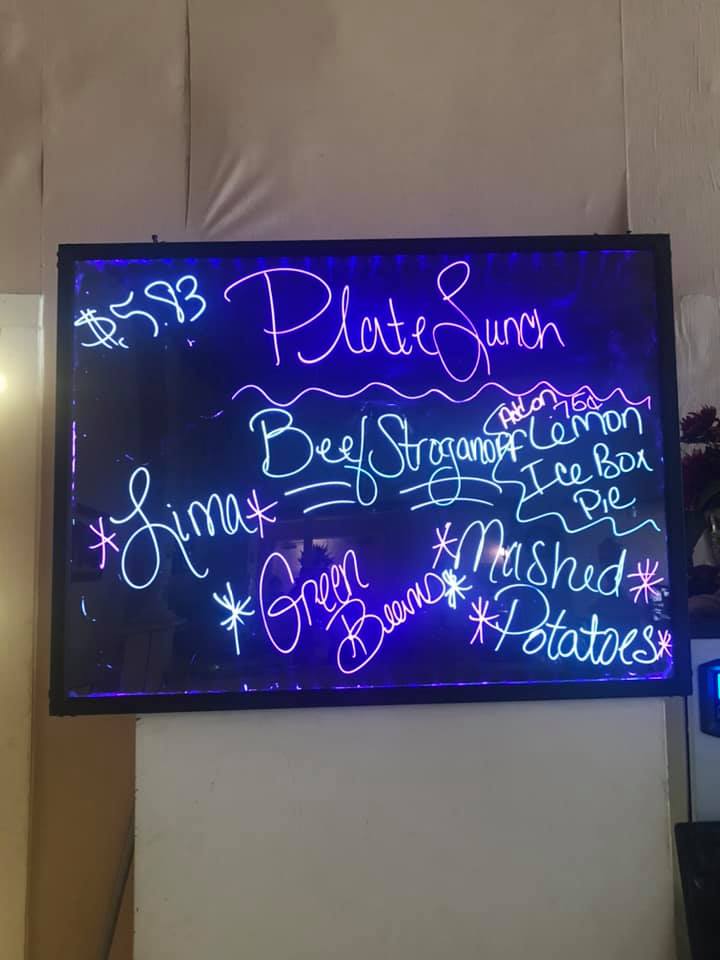 $5.83
Plate Lunch
Beef Stroganoff
Add on 75¢
Lemon
Ice Box
Pie
*Lima*
*Green
Beens*
*Mashed*
*Potatoes*